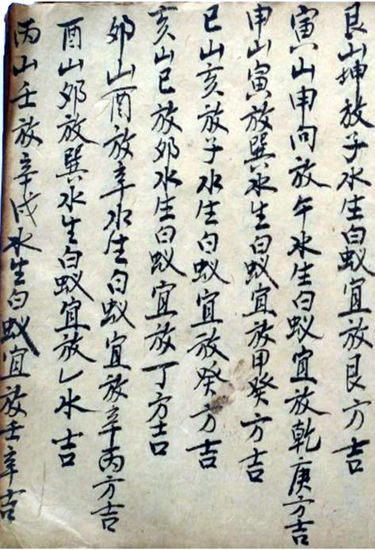 艮山坤放子水生白蚁宜放艮方吉
寅山申向放午水生白蚁宜放乾庚方吉
申山寅放巽水生白蚁宜放甲癸方吉
巳山亥放子水生白蚁宜放癸方吉
亥山巳放卯水生白蚁宜放丁方吉
卯山酉放辛水生白蚁宜放辛丙方吉
酉山卯放巽水生白蚁宜放乙水吉
丙山壬放辛戌水生白蚁宜放壬辛吉